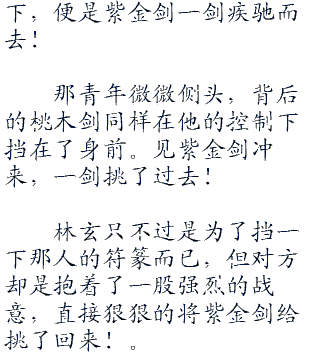 下，便是紫金剑一剑疾驰而
去！
那青年微微侧头，背后
的桃木剑同样在他的控制下
挡在了身前。见紫金剑冲
来，一剑挑了过去！
林玄只不过是为了挡一
下那人的符篆而已，但对方
却是抱着了一股强烈的战
意，直接狠狠的将紫金剑给
挑了回来！。